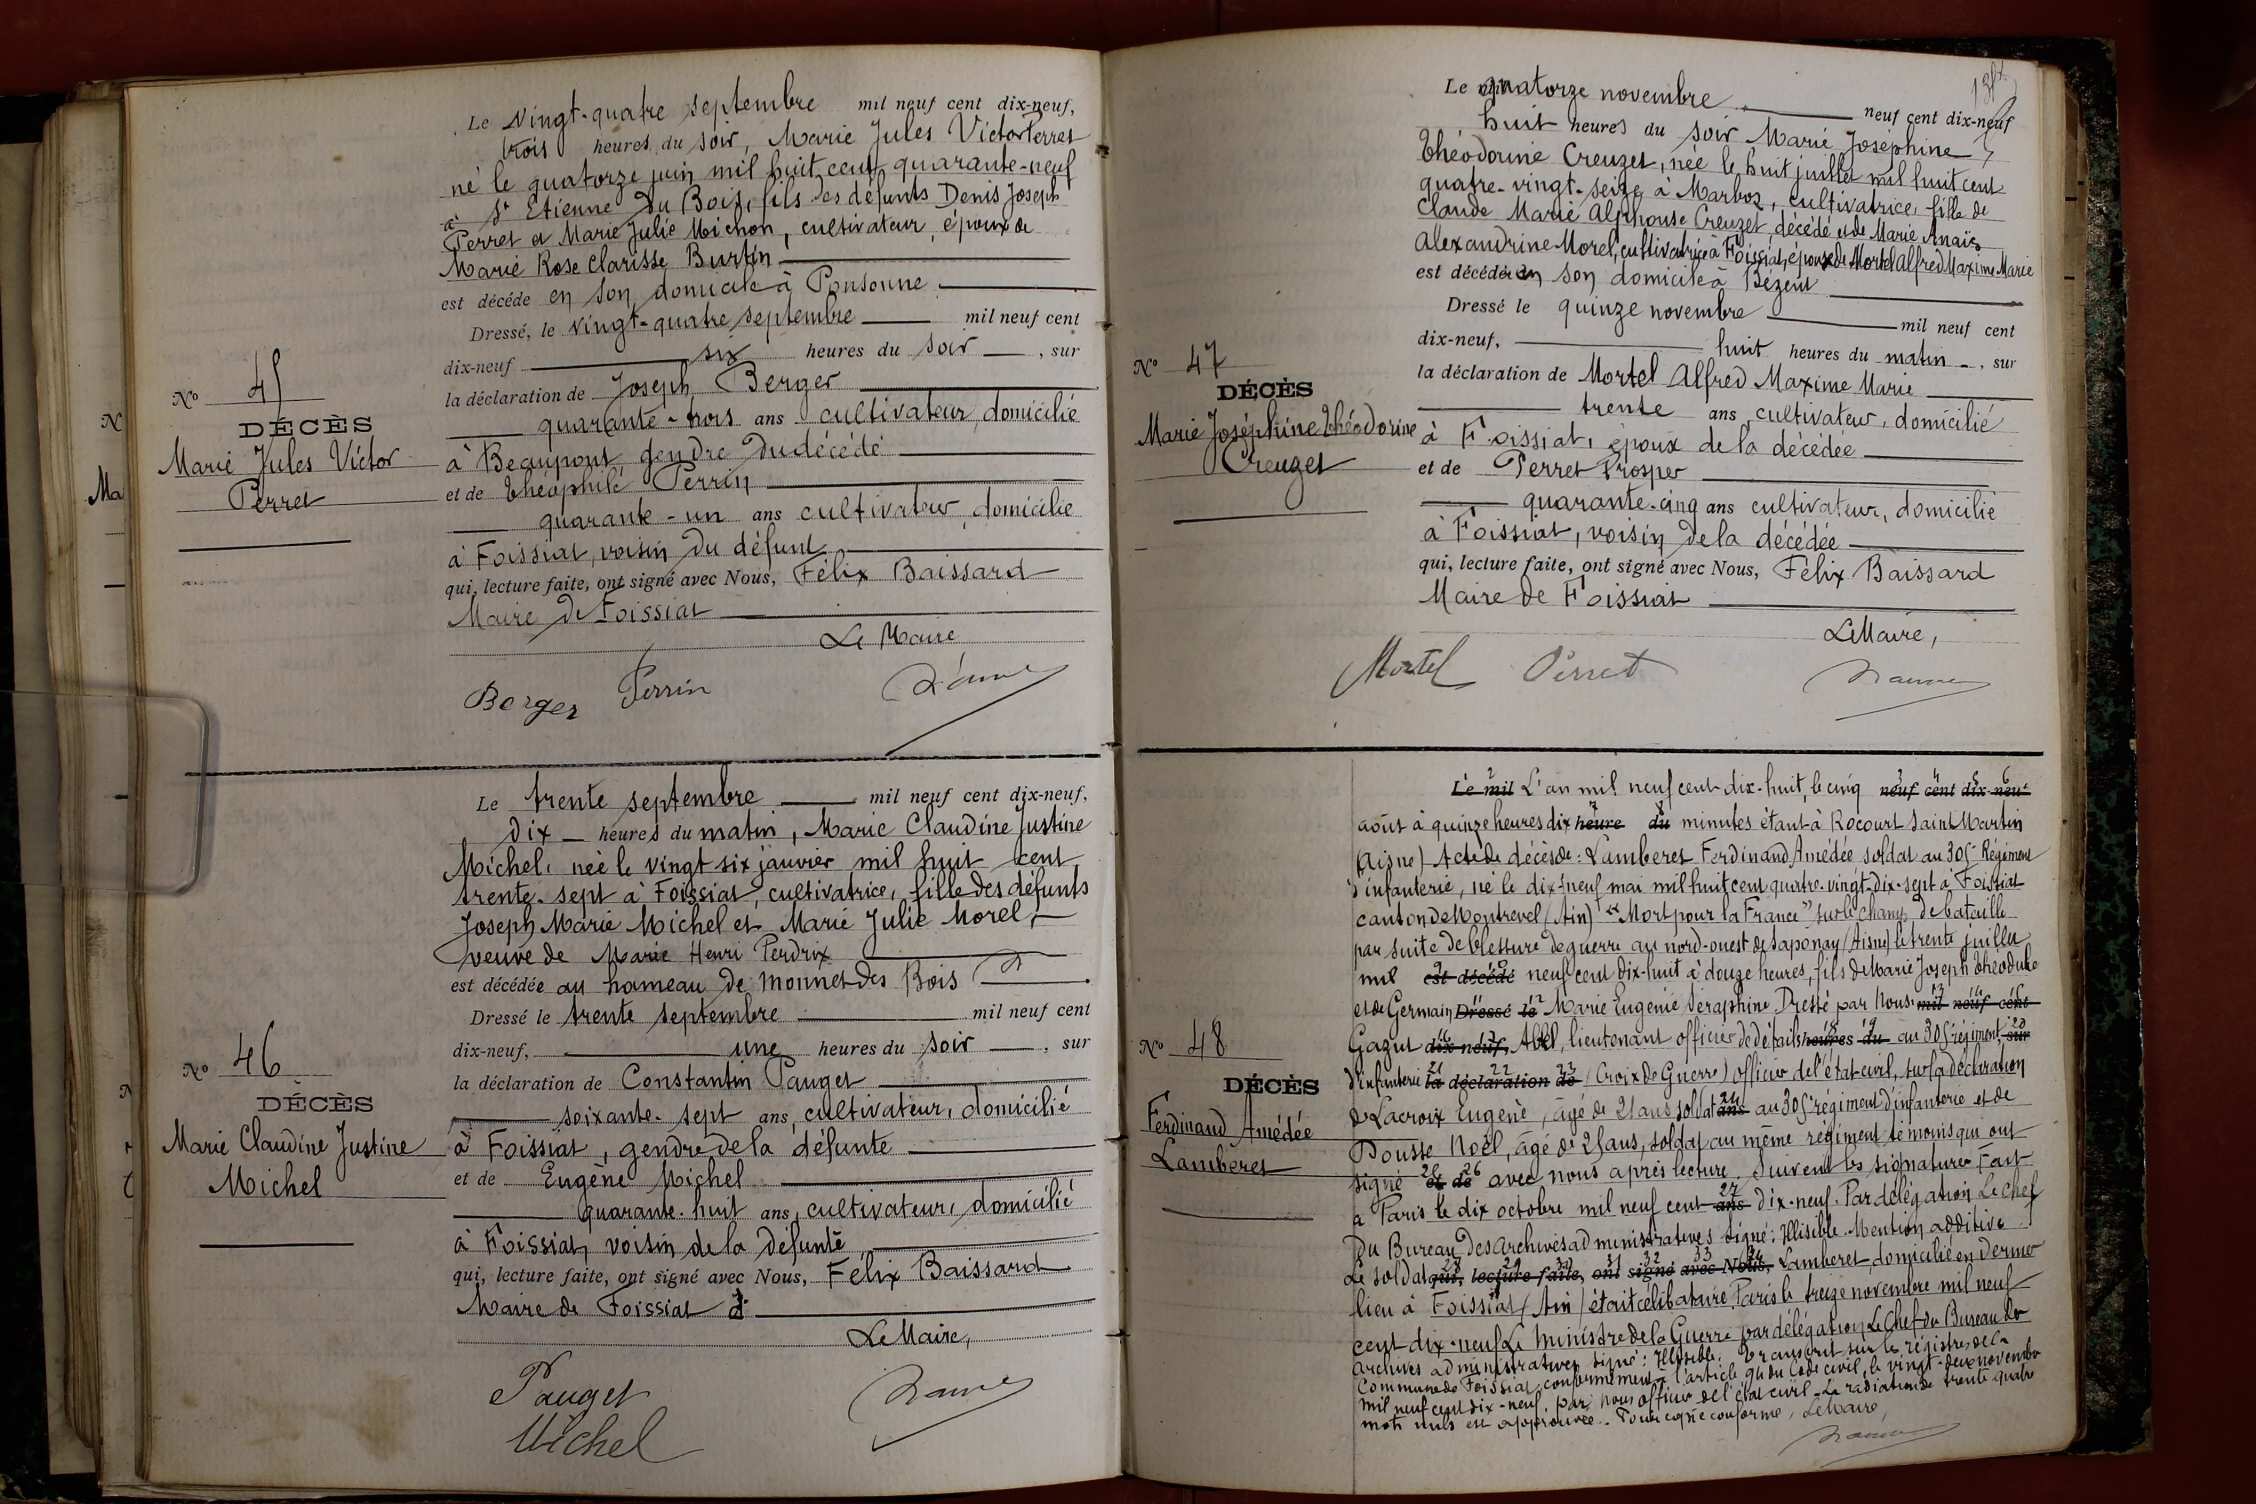 Le Vingt-quatre septembre mil neuf cent dix-neuf,
trois heures du soir, Marie Jules Victor Perret
né le quatorze juin mil huit cent quarante-neuf
à St Etienne du Bois, fils des défunts Denis Joseph
Perret et Marie Julie Michon, cultivateur, époux de
Marie Rose Clarisse Burtin
est décédé en son domicile à Ponsonne
Dressé, le vingt-quatre septembre mil neuf cent
dix-neuf six heures du soir, sur
la déclaration de Joseph Berger
quarante-trois ans cultivateur, domicilié
à Beaupont gendre du décédé
et de Théophile Perrin
quarante-un ans cultivateur, domicilié
à Foissiat, voisin du défunt
qui, lecture faite, ont signé avec Nous, Félix Baissard
Maire de Foissiat
Le Maire
Berger Perrin
No 45
DÉCÈS
Marie Jules Victor
Perret
Le trente septembre mil neuf cent dix-neuf,
dix heures du matin, Marie Claudine Justine
Michel, née le vingt six janvier mil huit cent
trente-sept à Foissiat, cultivatrice, fille des défunts
Joseph Marie Michel et Marie Julie Morel,
veuve de Marie Henri Perdrix
est décédée au hameau de Monnet des Bois
Dressé le trente septembre mil neuf cent
dix-neuf, une heures du soir, sur
la déclaration de Constantin Pauget
soixante-sept ans, cultivateur, domicilié
à Foissiat, gendre de la défunte
et de Eugène Michel
quarante-huit ans, cultivateur, domicilié
à Foissiat, voisin de la défunte
qui, lecture faite, ont signé avec Nous, Félix Baissard
Maire de Foissiat
Le Maire,
Pauget
Michel
No 46
DÉCÈS
Marie Claudine Justine
Michel
Le quatorze novembre neuf cent dix-neuf
huit heures du soir Marie Joséphine
Théodorine Creuzet, née le huit juillet mil huit cent
quatre-vingt-seize à Marboz, cultivatrice, fille de
Claude Marie Alphonse Creuzet, décédé et de Marie Anaïs
Alexandrine Morel, cultivatrice à Foissiat, épouse de Mortel Alfred Maxime Marie
est décédée en son domicile à Bézent
Dressé le quinze novembre mil neuf cent
dix-neuf, huit heures du matin, sur
la déclaration de Mortel Alfred Maxime Marie
trente ans, cultivateur, domicilié
à Foissiat, époux de la décédée
et de Perret Prosper
quarante-cinq ans cultivateur, domicilié
à Foissiat, voisin de la décédée
qui, lecture faite, ont signé avec Nous, Félix Baissard
Maire de Foissiat
Le Maire,
Mortel Perret
No 47
DÉCÈS
Marie Joséphine Théodorine
Creuzet
Le mil L'an mil neuf cent dix-huit, le cinq neuf cent dix-neuf
août à quinze heures dix heure du minutes étant à Rocourt Saint Martin
(Aisne) Acte de décès de : Lamberet Ferdinand Amédée soldat au 305e Régiment
d'infanterie, né le dix-neuf mai mil huit cent quatre-vingt-dix-sept à Foissiat
canton de Montrevel (Ain) "Mort pour la France" sur le champ de bataille
par suite de blessure de guerre au nord-ouest de Saponay (Aisne) le trente juillet
mil est décédé neuf cent dix-huit à douze heures, fils de Marie Joseph Théodule
et de Germain Dressé le Marie Eugénie Séraphine. Dressé par Nous mil neuf cent
Gazut dix neuf, Abel, lieutenant officier de détails heures du au 305e régiment, sur
d'infanterie la déclaration de (Croix de Guerre) officier de l'état-civil, sur la déclaration
de Lacroix Eugène, âgé de 21 ans soldat ans au 305e régiment d'infanterie et de
Dousse Noël, âgé de 21 ans, soldat au même régiment témoins qui ont
signé et de avec nous après lecture. Suivent les signatures. Fait
à Paris le dix octobre mil neuf cent ans dix-neuf. Par délégation Le Chef
du Bureau des Archives administratives signé : Illisible. Mention additive
Le soldat qui, lecture faite, ont signé avec Nous, Lamberet domicilié en dernier
lieu à Foissiat (Ain) était célibataire. Paris le treize novembre mil neuf
cent dix-neuf Le Ministre de la Guerre par délégation Le Chef du Bureau des
Archives administratives signé : Illisible. Transcrit sur les registres de la
Commune de Foissiat conformément à l'article 94 du Code civil, le vingt-deux novembre
mil neuf cent dix-neuf, par nous officier de l'état civil. La radiation de trente quatre
mots nuls est approuvée. Pour copie conforme, Le Maire,
No 48
DÉCÈS
Ferdinand Amédée
Lamberet